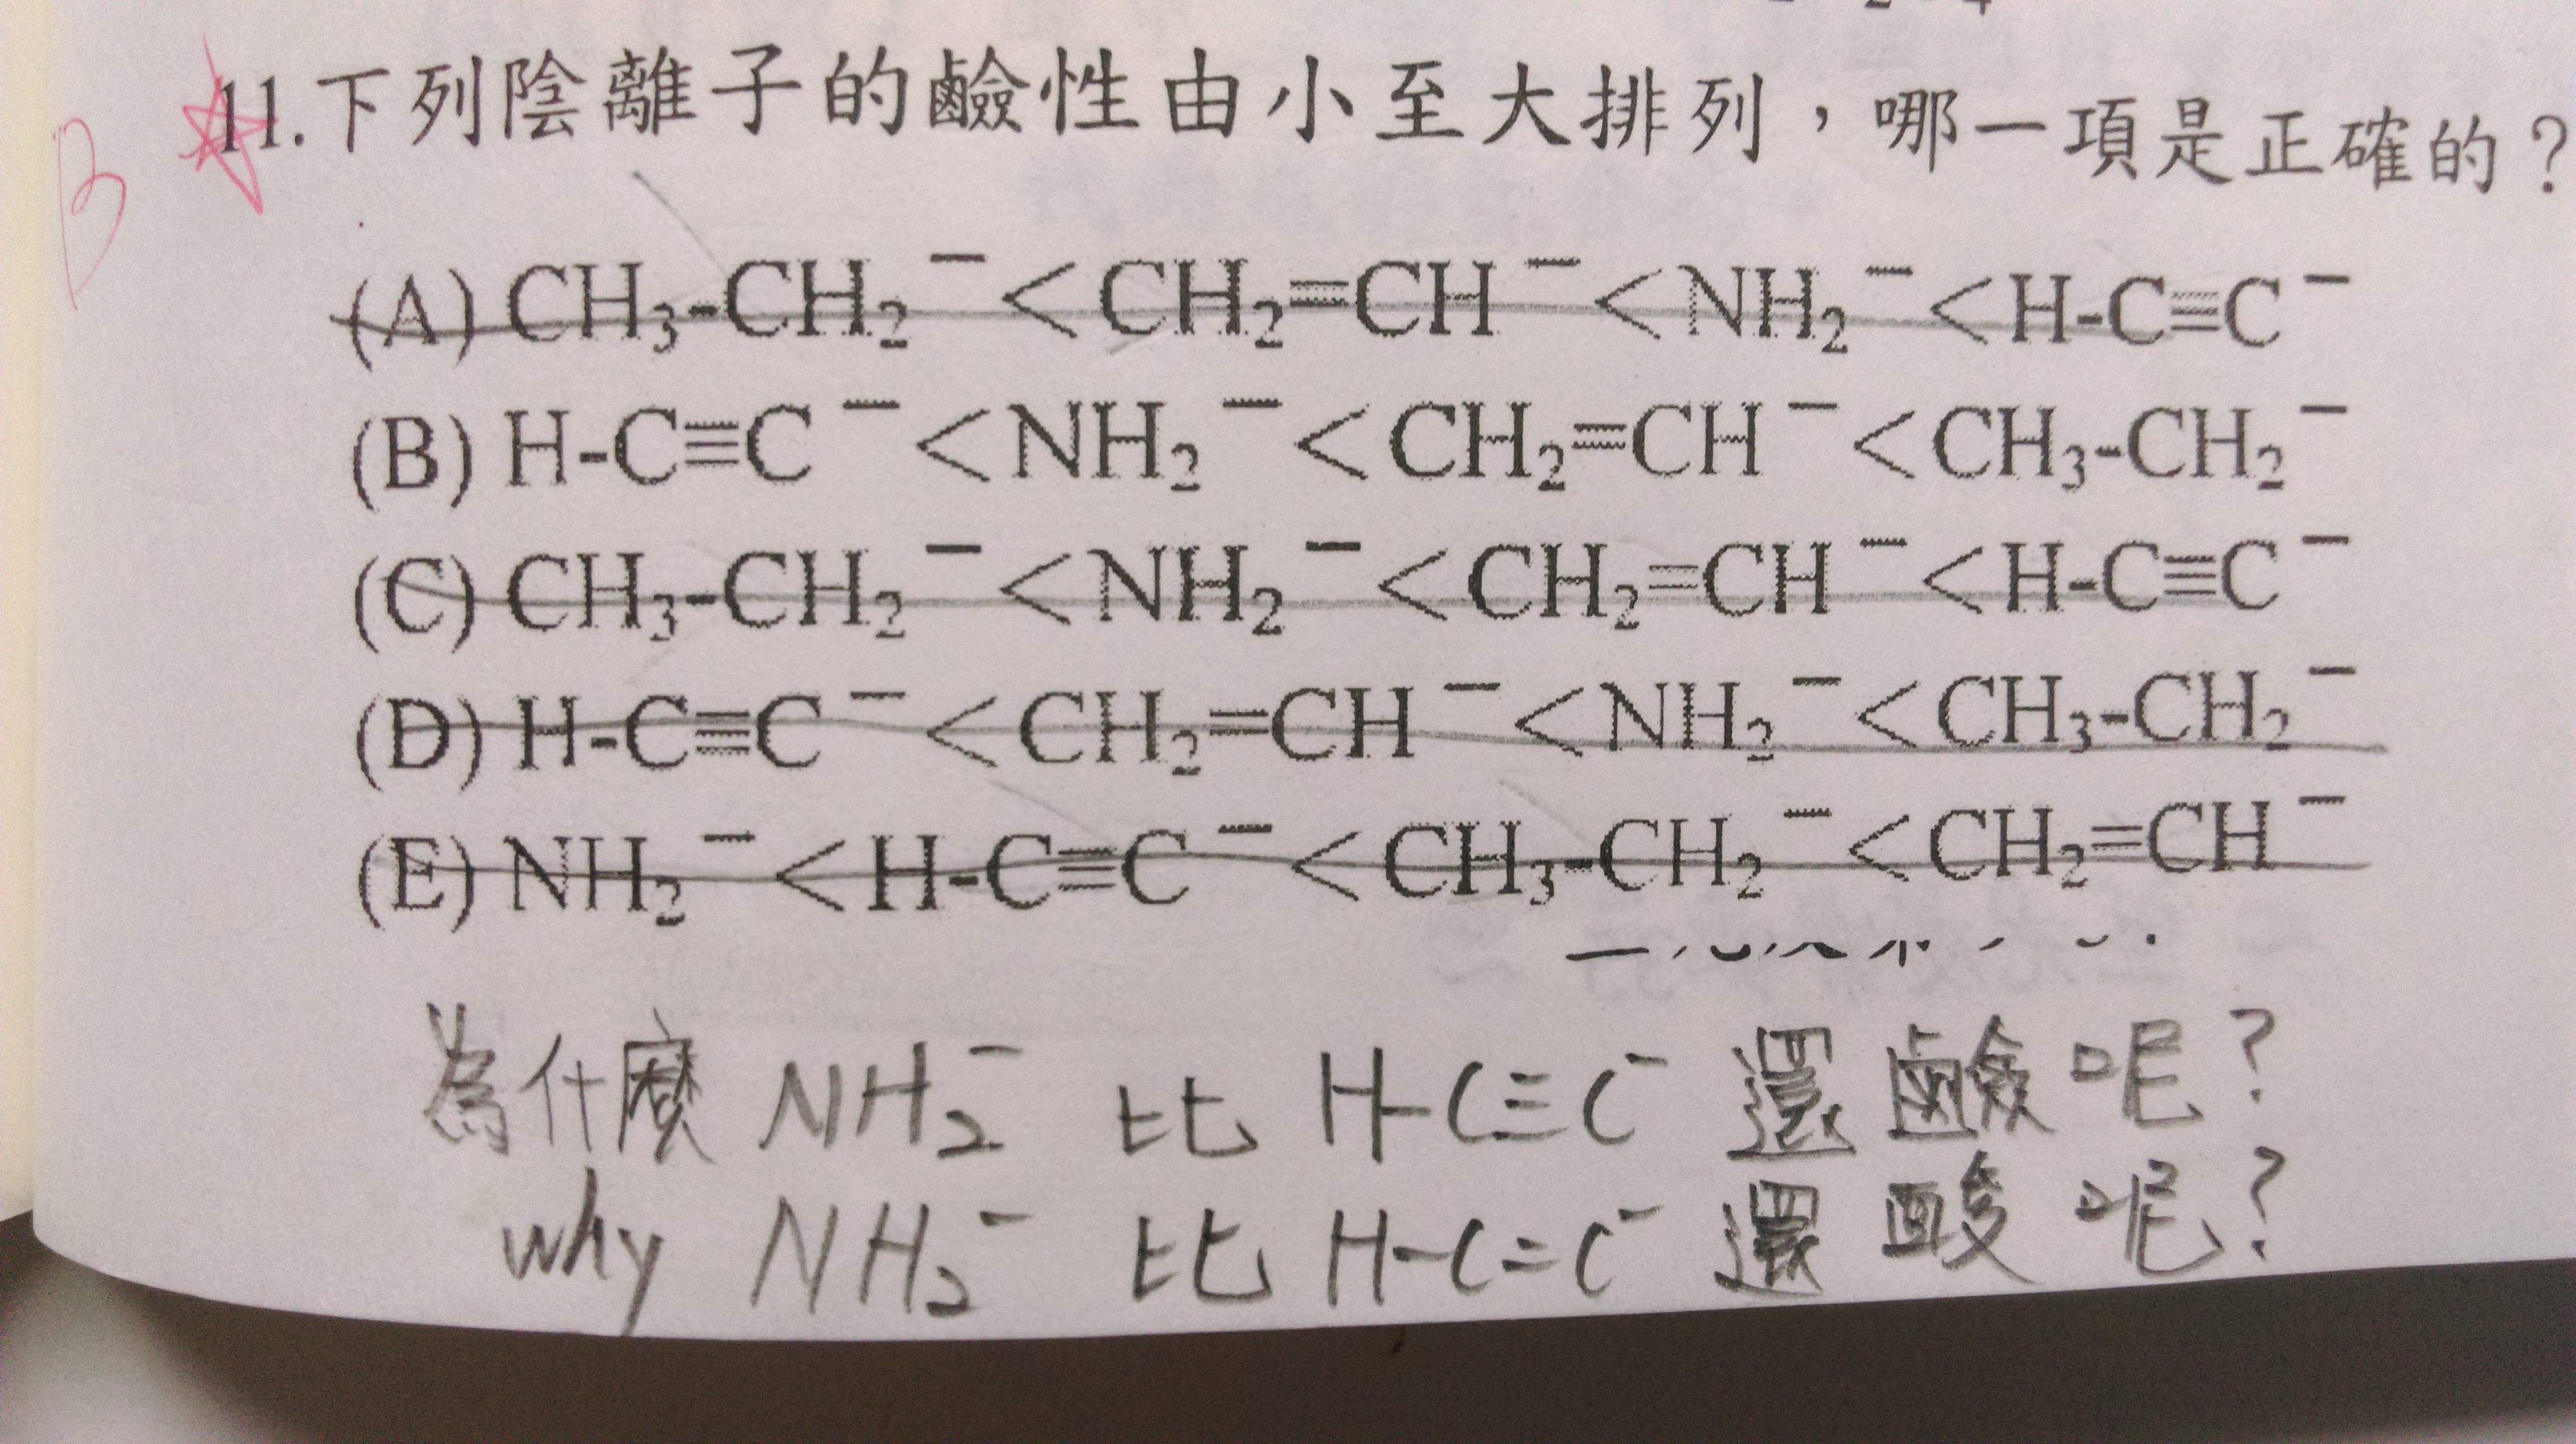 B
11.下列陰離子的鹼性由小至大排列，哪一項是正確的？
(A) CH₃-CH₂⁻ < CH₂=CH⁻ < NH₂⁻ < H-C≡C⁻
(B) H-C≡C⁻ < NH₂⁻ < CH₂=CH⁻ < CH₃-CH₂⁻
(C) CH₃-CH₂⁻ < NH₂⁻ < CH₂=CH⁻ < H-C≡C⁻
(D) H-C≡C⁻ < CH₂=CH⁻ < NH₂⁻ < CH₃-CH₂⁻
(E) NH₂⁻ < H-C≡C⁻ < CH₃-CH₂⁻ < CH₂=CH⁻
為什麼 NH₂⁻ 比 H-C≡C⁻ 還鹼呢？
why NH₂⁻ 比 H-C=C⁻ 還酸呢？